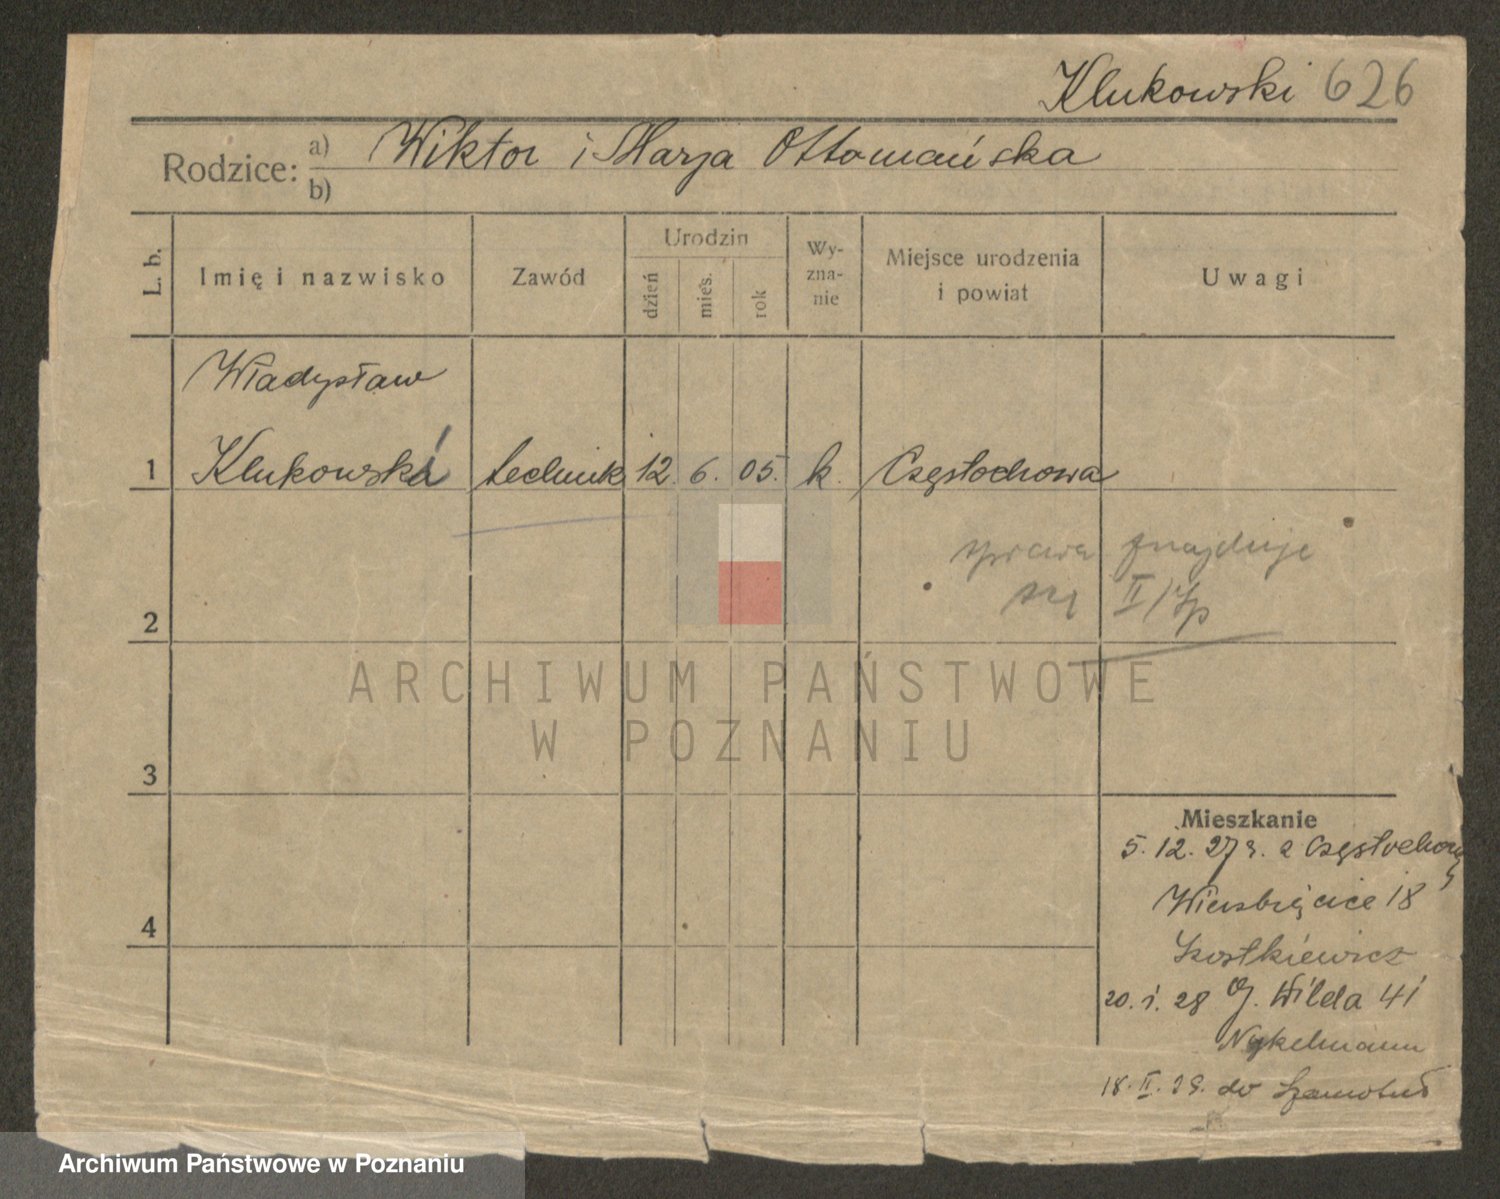 Klukowski 626
Rodzice: a) Wiktor i Marja Ottomańska
b)
L. b.
Imię i nazwisko
Zawód
Urodzin
dzień
mies.
rok
Wy-
zna-
nie
Miejsce urodzenia
i powiat
Uwagi
Władysław
1 Klukowski technik 12. 6. 05. k. Częstochowa
sprawa znajduje
się II/
2
3
4
ARCHIWUM PAŃSTWOWE
W POZNANIU
Mieszkanie
5. 12. 27 r. z Częstochowy
Wierzbięcice 18
Szostkiewicz
20. 1. 28 G. Wilda 41
Nykelmann
18. II. 28. do Szamotuł
Archiwum Państwowe w Poznaniu